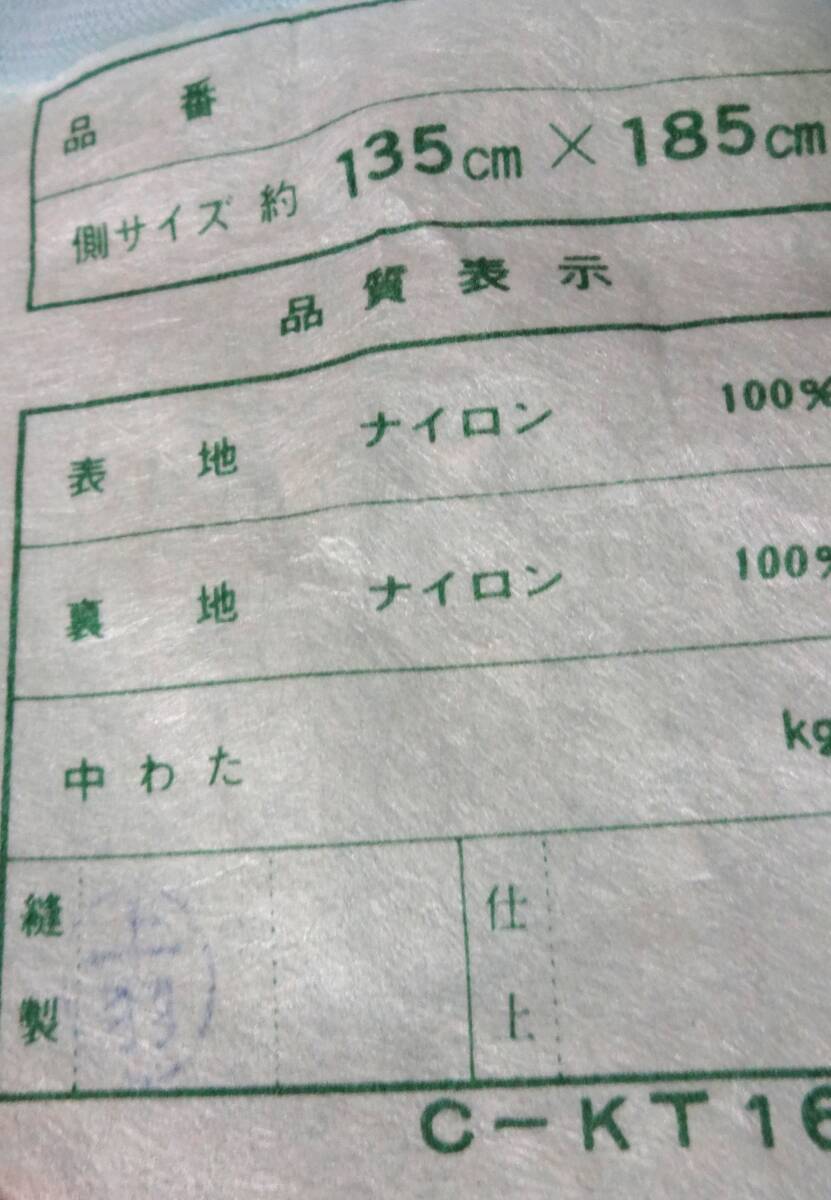 品番
側サイズ 約 135cm × 185cm
品質表示
表地 ナイロン 100%
裏地 ナイロン 100%
中わた kg
縫製 仕上
C-KT16